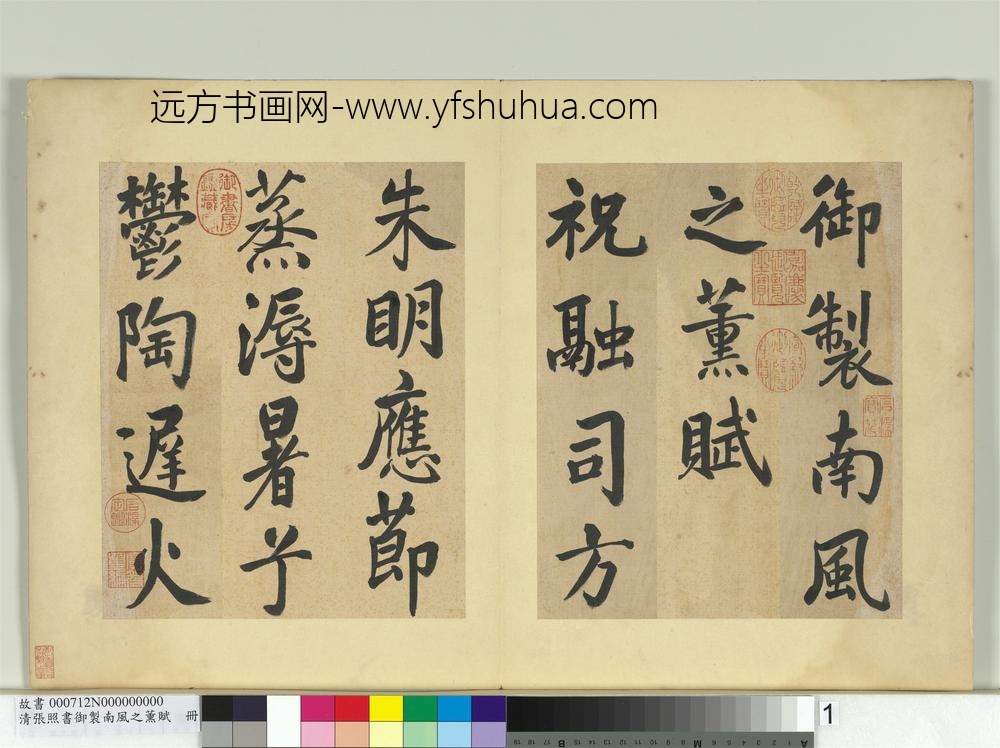 远方书画网-www.yfshuhua.com
御製南風
之薰賦
祝融司方
朱明應節
蒸溽暑兮
鬱陶遲火
御書房鑑藏寶
嘉慶御覽之寶
故書 000712N000000000
清張照書御製南風之薰賦 冊
1